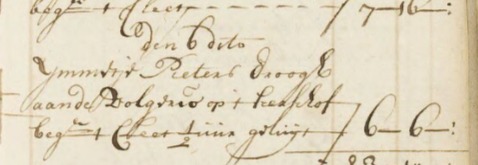 begr t Cleet 7-16-:
den 6 dito
Ymmetje Pieters droogh
aande Dolger op t kerkhof
begr t Cleet ½ uur geluijt 6-6-: